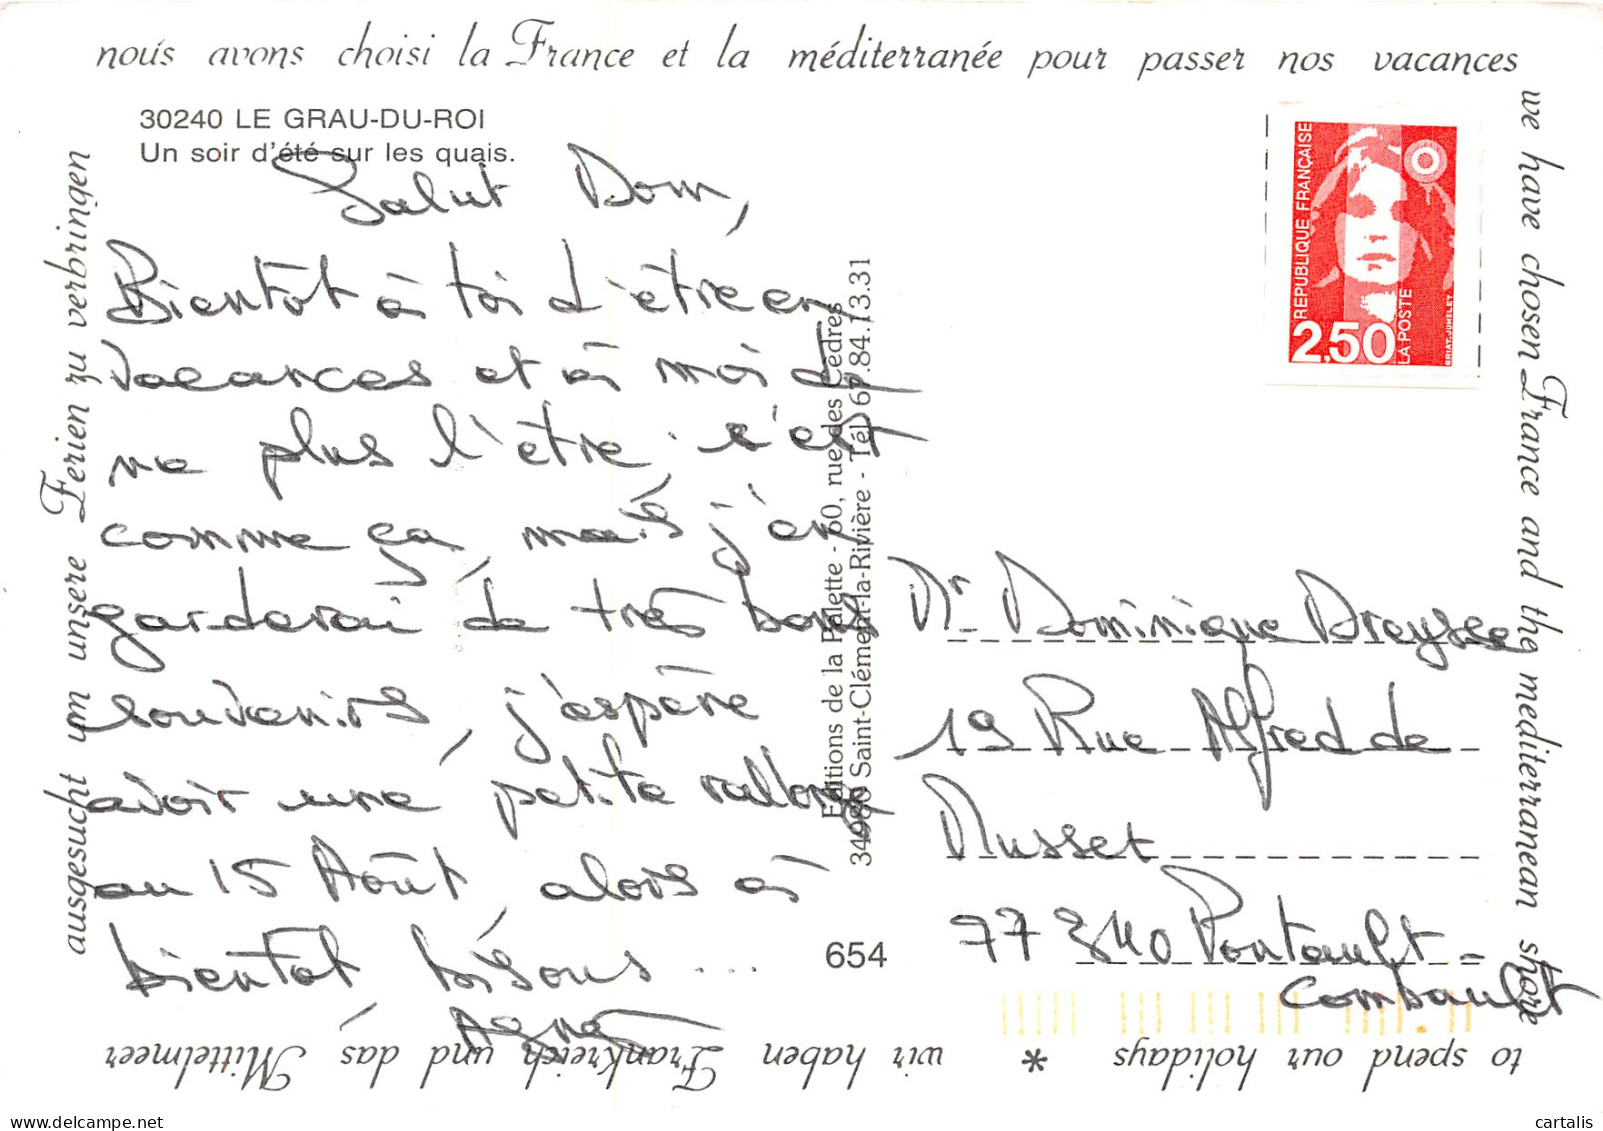 nous avons choisi la France et la méditerranée pour passer nos vacances
we have chosen France and the mediterranean shore
to spend our holidays * wir haben Frankreich und das Mittelmeer
ausgesucht um unsere Ferien zu verbringen
30240 LE GRAU-DU-ROI
Un soir d'été sur les quais.
Salut Dom,
Bientôt à toi d'être en
vacances et à moi de
ne plus l'être, c'est
comme ça, mais j'en
garderai de très bons
souvenirs, j'espère
avoir une petite rallonge
au 15 Août, alors à
bientôt, bisous...
Agnès
Editions de la Palette - 60, rue des Cèdres
34980 Saint-Clément-la-Rivière - Tél. 67.84.13.31
654
REPUBLIQUE FRANÇAISE
2,50
LA POSTE
BRIAT-JUMELET
Mr Dominique Dreysse
19 Rue Alfred de
Musset
77340 Pontault-
Combault
cartalis